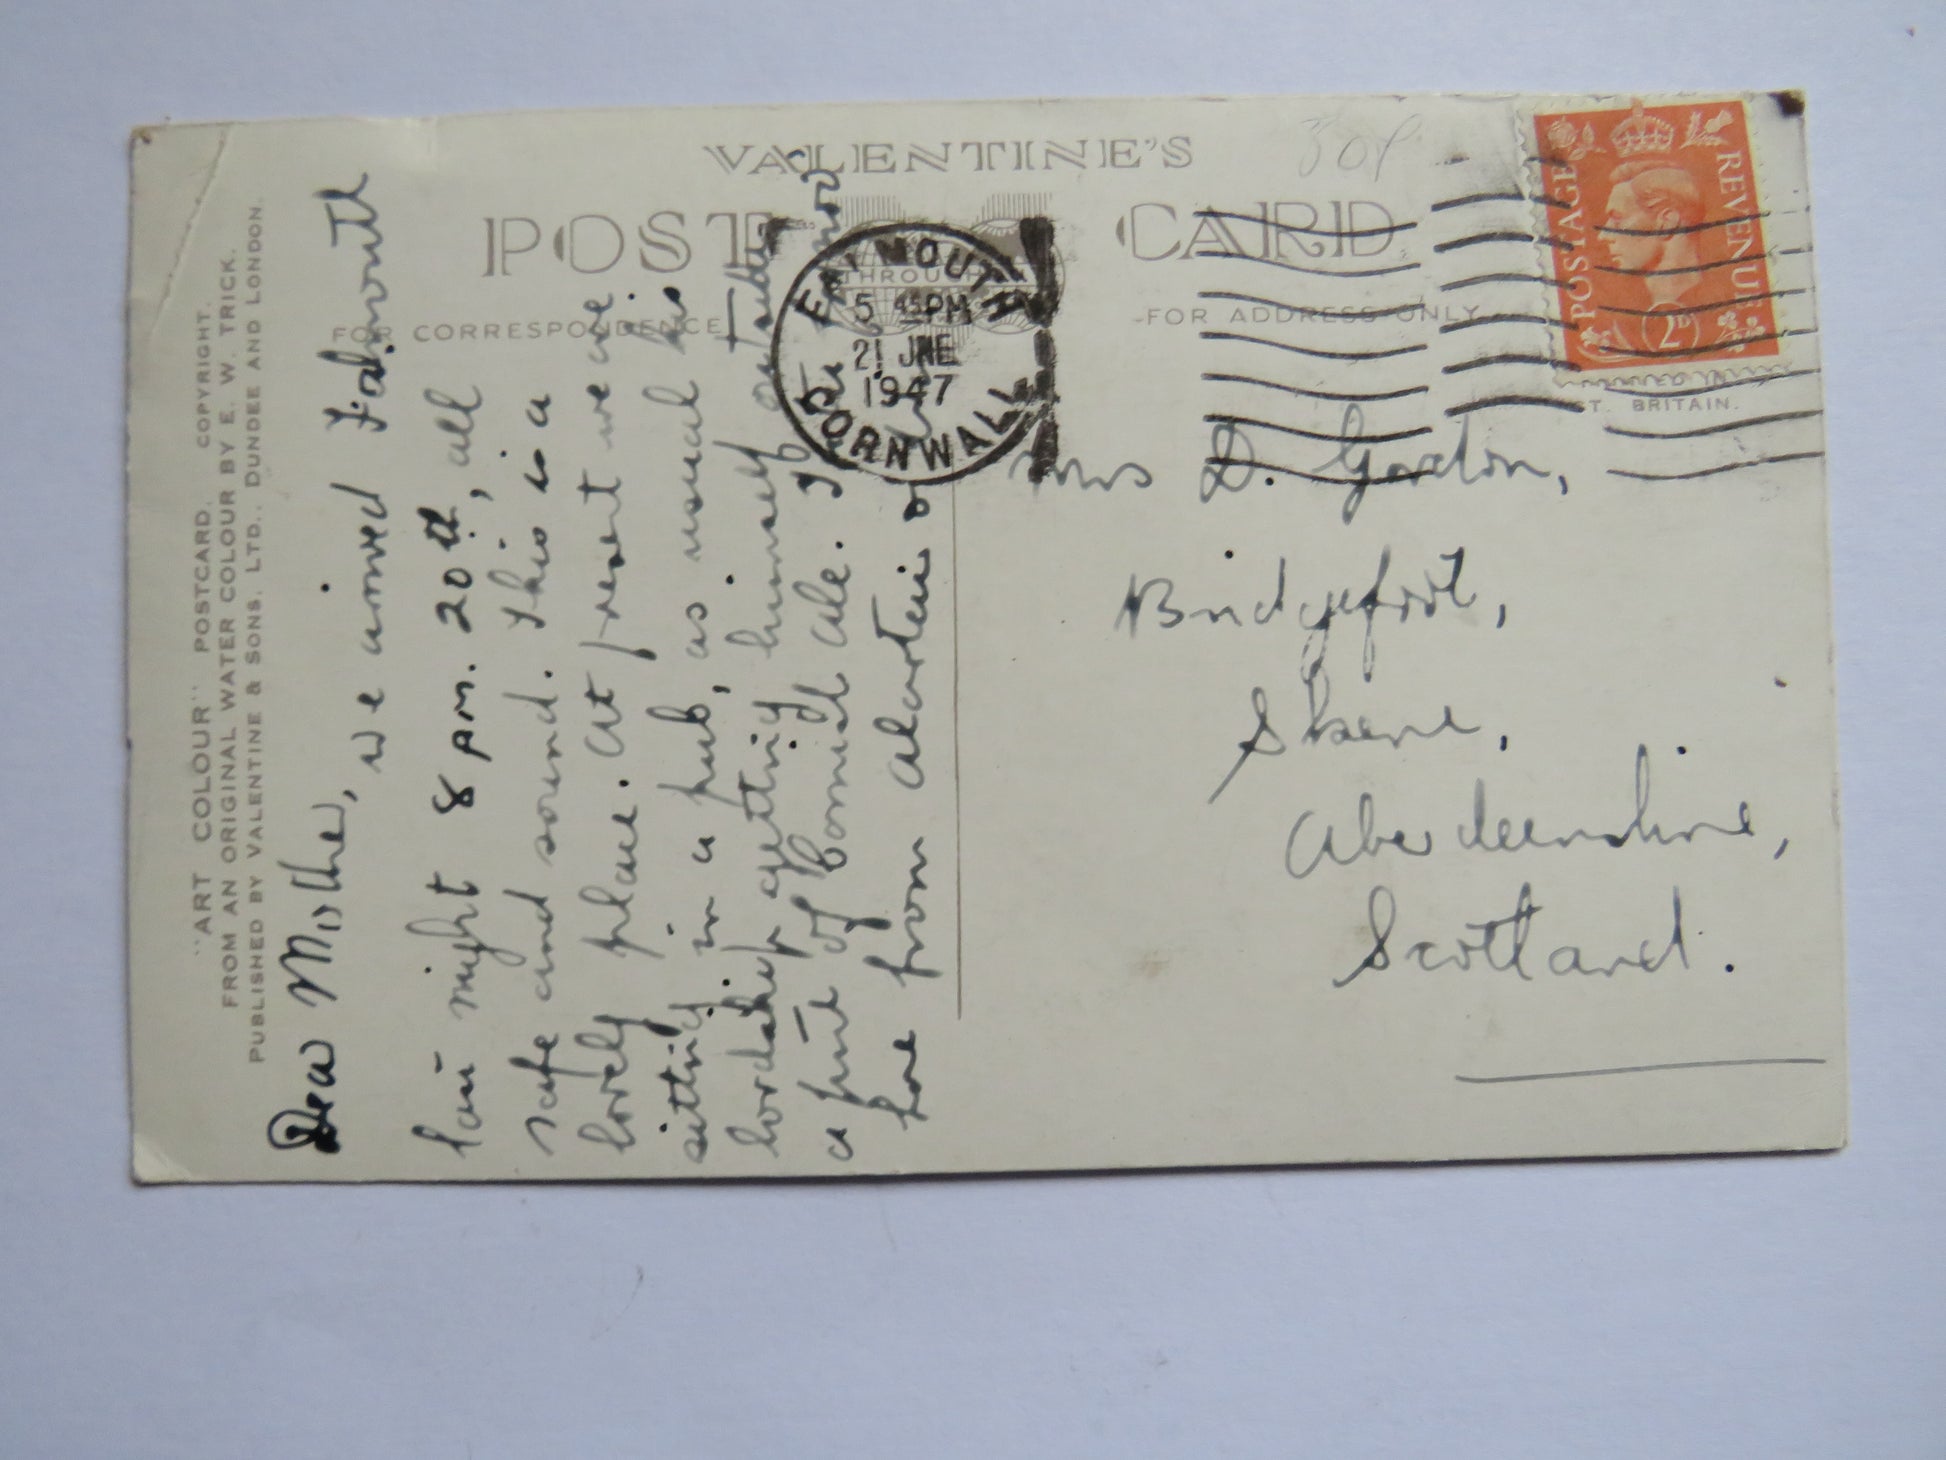 "ART COLOUR" POSTCARD. COPYRIGHT.
FROM AN ORIGINAL WATER COLOUR BY E. W. TRICK.
PUBLISHED BY VALENTINE & SONS, LTD., DUNDEE AND LONDON.
VALENTINE'S
POST CARD
FOR CORRESPONDENCE
FOR ADDRESS ONLY
30p
POSTAGE REVENUE
2D
GT. BRITAIN.
FALMOUTH
5 45 PM
21 JNE
1947
CORNWALL
Dear Mother,
we arrived Falmouth
last night 8 pm. 20th, all
safe and sound. This is a
lovely place. At present we are
sitting in a pub, as usual his
lordship getting himself outside
a pint of Cornish ale. It is hot
love from
Mrs D. Gordon,
Bridgefoot,
Skene,
Aberdeenshire,
Scotland.